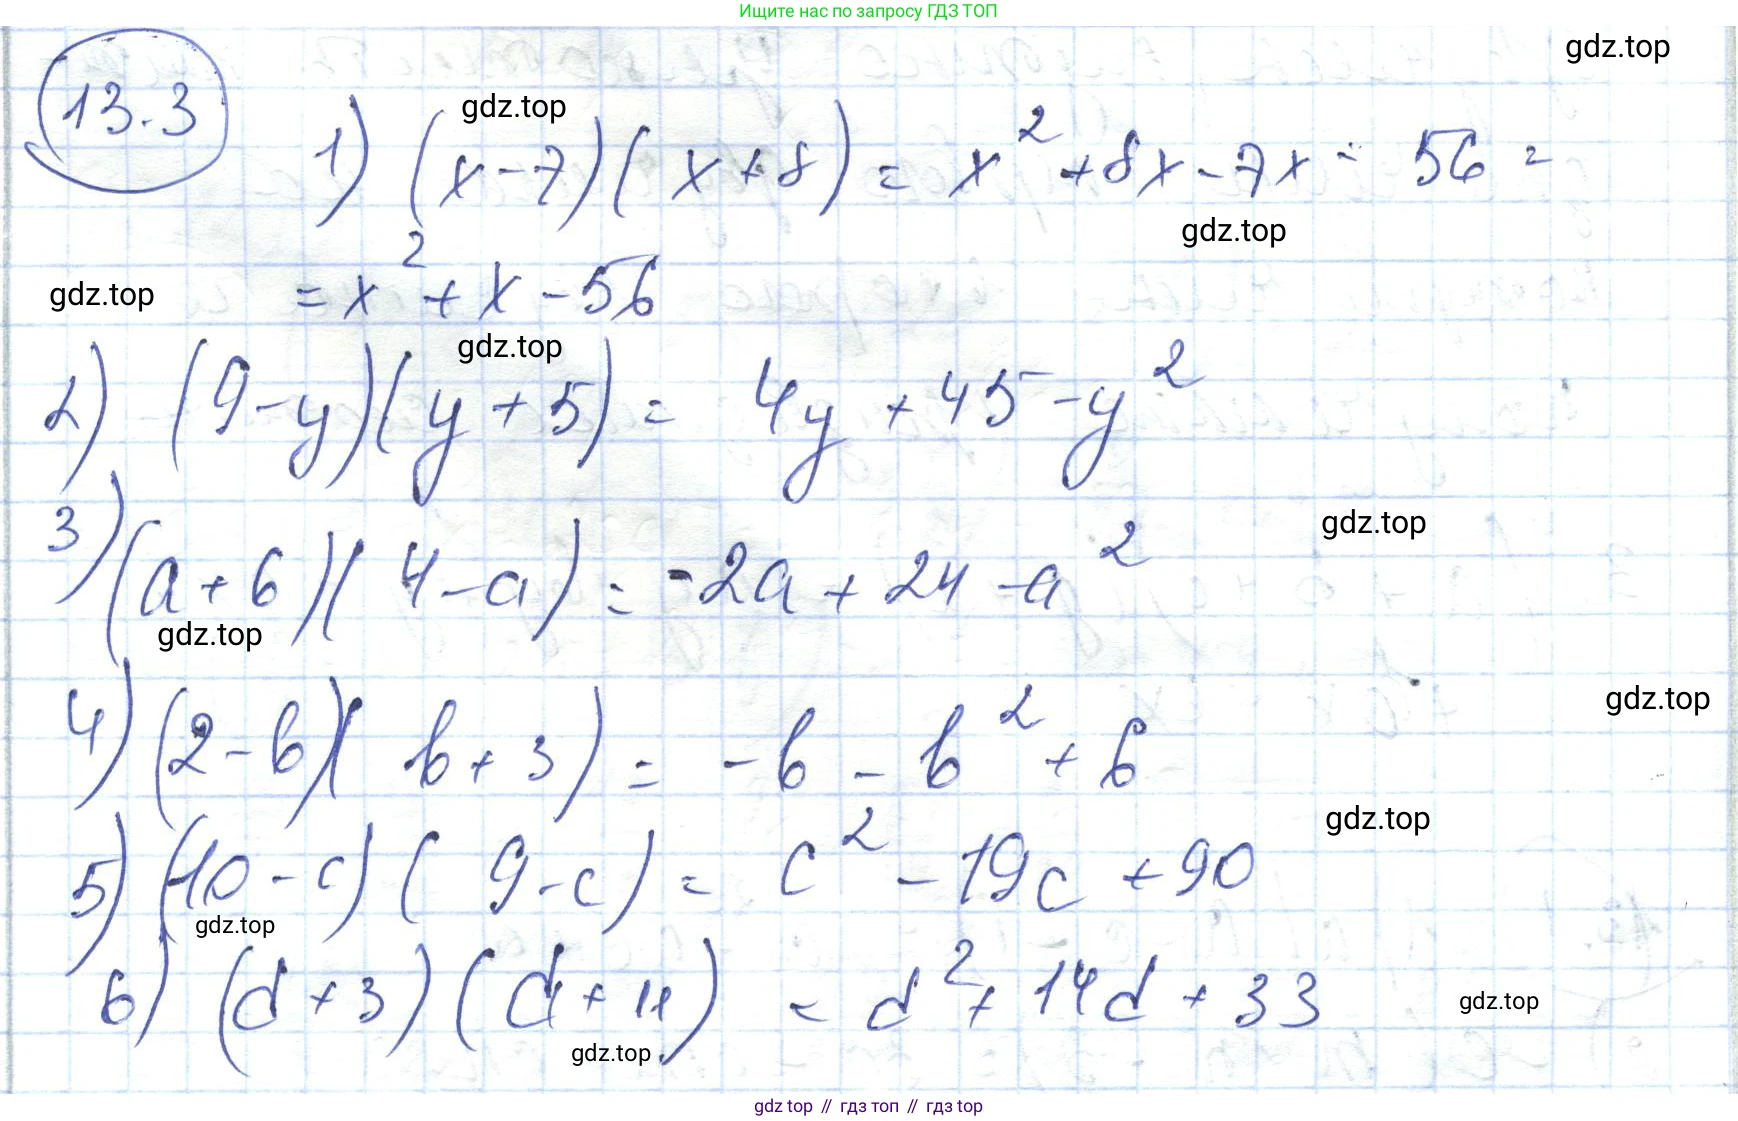 Ищите нас по запросу ГДЗ ТОП
gdz.top
13.3
gdz.top
1) (x-7)(x+8) = x² +8x-7x - 56 =
gdz.top
= x² + x - 56
gdz.top
gdz.top
2) (9-y)(y+5) = 4y + 45 - y²
3) (a+6)(4-a) = -2a + 24 - a²
gdz.top
gdz.top
4) (2-b)(b+3) = -b - b² + 6
gdz.top
5) (10-c)(9-c) = c² - 19c + 90
gdz.top
gdz.top
6) (d+3)(d+11) = d² + 14d + 33
gdz.top
gdz.top
gdz top // гдз топ // гдз top